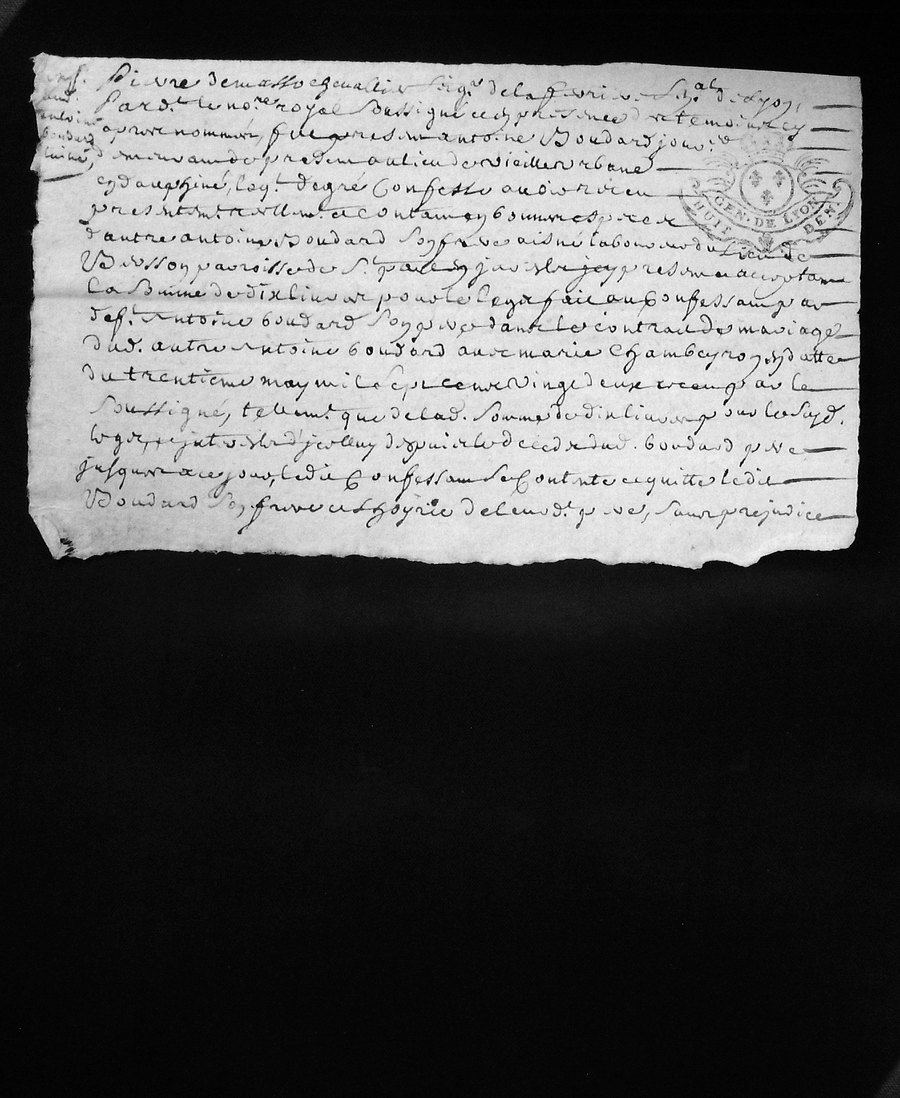 Pierre Demasso chevallier Seigr. de la ferriere Snal. de Lyon
Pardt. le nore. royal Soussigné et en presence des temoins cy
apres nommés, fut present antoine Boudard jour
demeurant de present au lieu de vieille
en dauphiné, leql. de gré Confesse avoir receu
presentemt. reellemt. et Contant en bonnes especes
d'autre antoine Boudard Son frere aisné laboureur du Lieu de
Besson parroisse de St. present et acceptant
La Somme de dix livres pour le legs fait au Confessant par
deft. Antoine boudard Son pere dans le contrat de mariage
Dud. autre Antoine boudard avec marie Chambeyron en datte
Du trentieme may mil Sept cent vingt deux receu par le
Soussigné, tellemt. que de lad. Somme de dix livres pour le Susd.
legs, et interests d'icelluy depuis le deced dud. boudard pere
jusques a ce jour, ledit Confessant Se Contente et quitte ledit
Boudard Son frere et Lhoyrie de leurdt. pere, Sans prejudice
antoine
boudard
GEN. DE LYON
HUIT DEN.